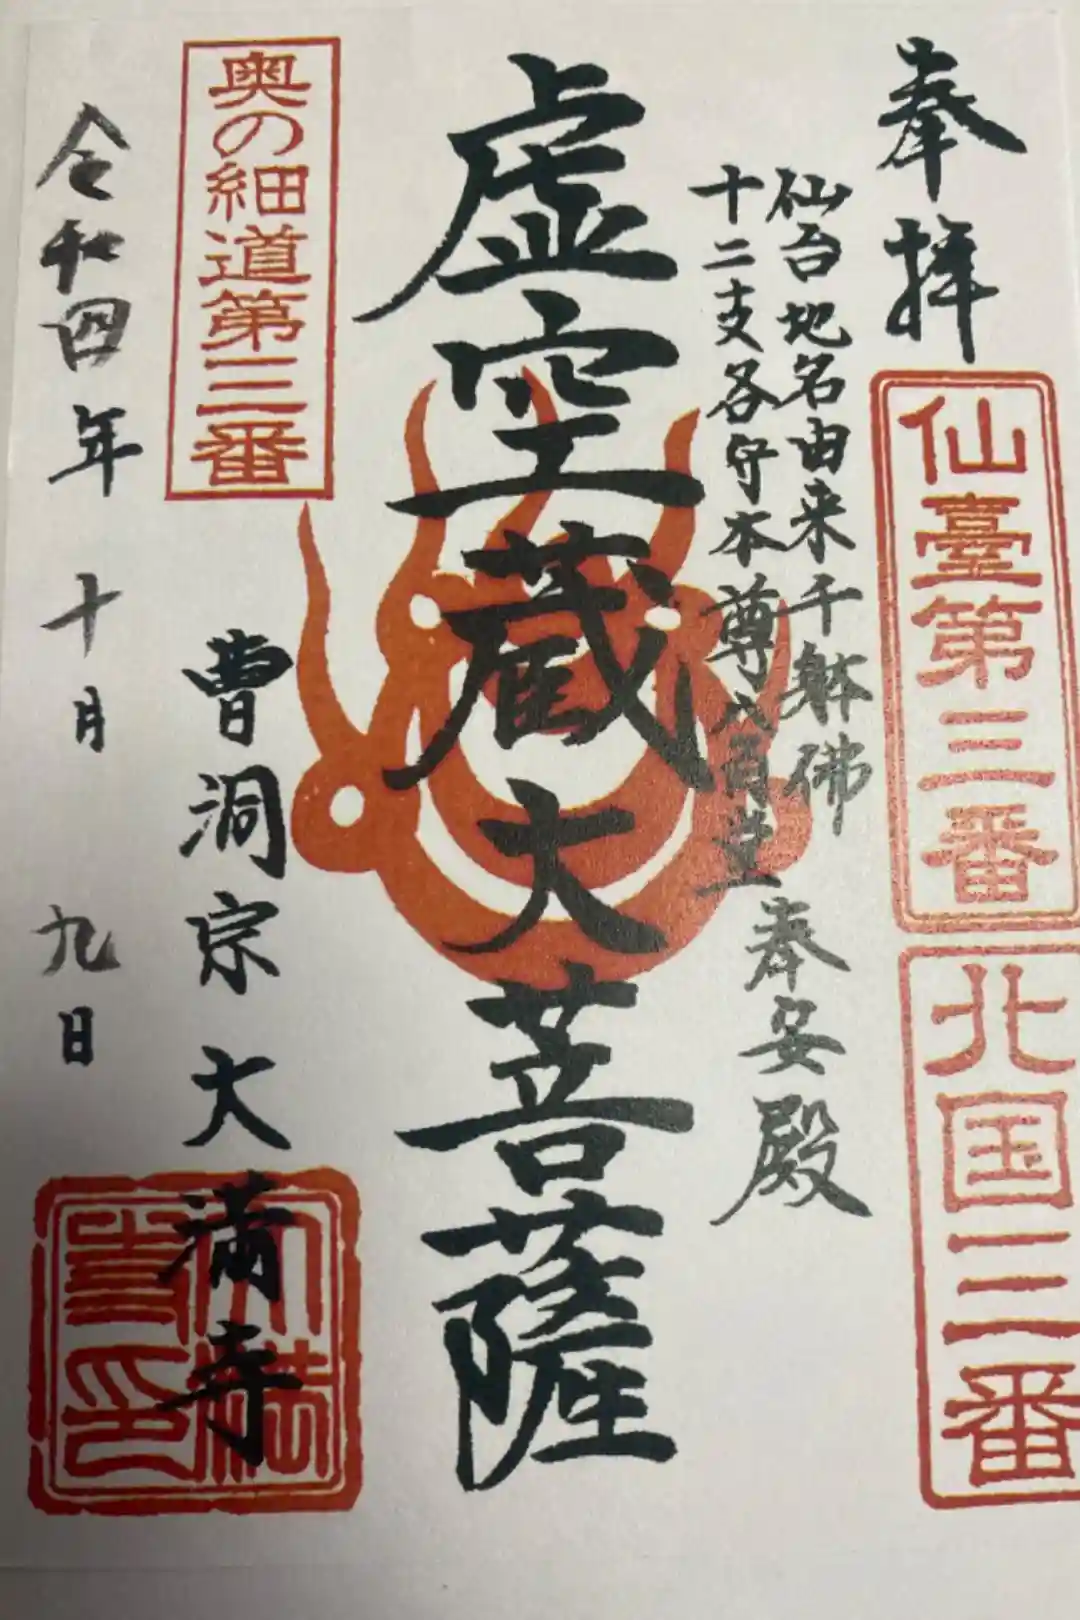 奉拝
仙臺第三番
北国三番
仙台地名由来千躰佛
十二支各守本尊八百萱
奉安殿
虚空蔵大菩薩
奥の細道第三番
曹洞宗大満寺
令和四年十月九日